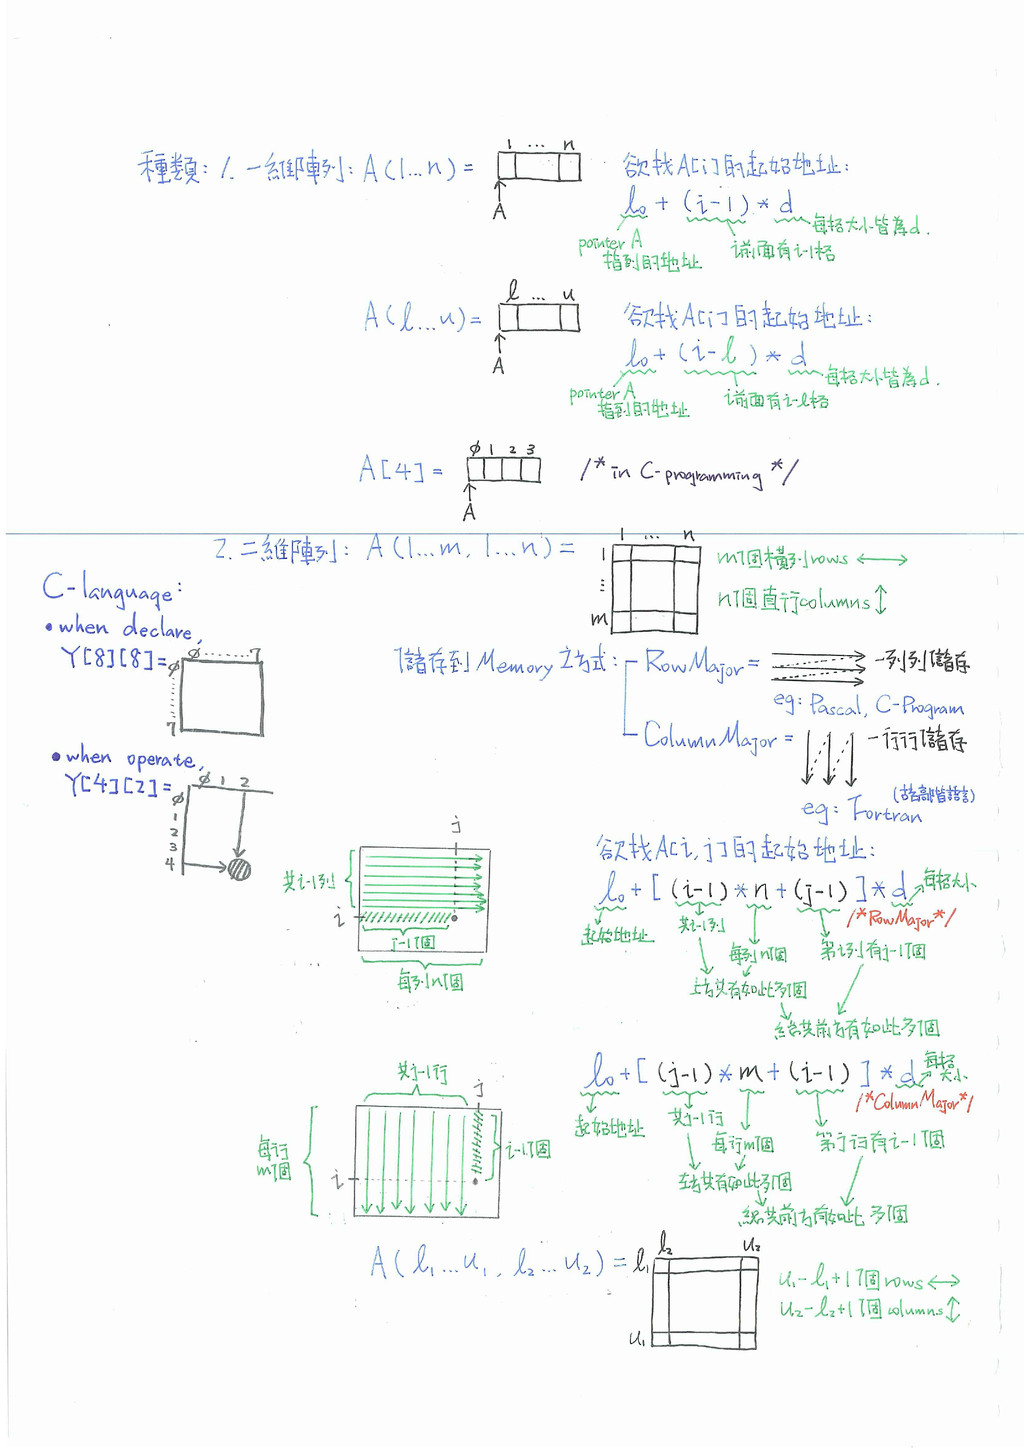 種類: 1. 一維陣列: A(1...n) =
1 ... n
A
欲找A[i]的起始地址:
l₀ + (i-1) * d
pointer A
指到的地址
i前面有i-1格
每格大小皆為d.
A(l...u) =
l ... u
A
欲找A[i]的起始地址:
l₀ + (i-l) * d
pointer A
指到的地址
i前面有i-l格
每格大小皆為d.
A[4] =
φ 1 2 3
A
/* in C-programming */
2. 二維陣列: A(1...m, 1...n) =
1 ... n
1
⋮
m
m個橫列rows ↔
n個直行columns ↕
C-language:
• when declare,
Y[8][8]=
φ ........ 7
φ
7
• when operate,
Y[4][2]=
φ 1 2
φ
1
2
3
4
儲存到Memory之方式:
RowMajor =
一列列儲存
eg: Pascal, C-Program
ColumnMajor =
一行行儲存
eg: Fortran
(古老高階語言)
欲找A[i, j]的起始地址:
l₀ + [ (i-1) * n + (j-1) ] * d
每格大小
/*RowMajor*/
起始地址
共i-1列
每列n個
第i列有j-1個
上方共有如此多個
總共前方有如此多個
j
共i-1列
i
j-1個
每列n個
l₀ + [ (j-1) * m + (i-1) ] * d
每格
大小
/*ColumnMajor*/
起始地址
共j-1行
每行m個
第j行有i-1個
左方共有如此多個
總共前方有如此多個
共j-1行
j
每行
m個
i
i-1個
A(l₁...u₁, l₂...u₂) =
l₂ u₂
l₁
u₁
u₁-l₁+1個rows ↔
u₂-l₂+1個columns ↕